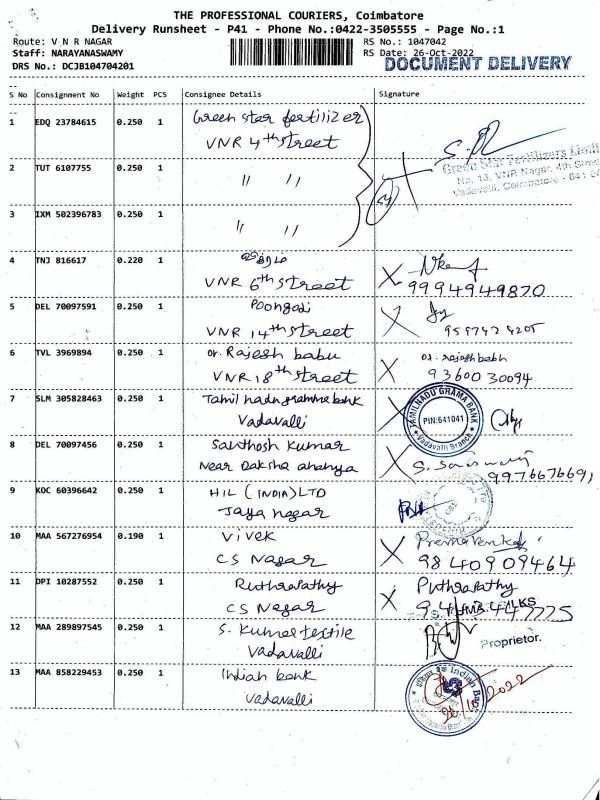 THE PROFESSIONAL COURIERS, Coimbatore
Delivery Runsheet - P41 - Phone No.:0422-3505555 - Page No.:1
Route: V N R NAGAR RS No.: 1047042
Staff: NARAYANASWAMY RS Date: 26-Oct-2022
DRS No.: DCJB104704201 DOCUMENT DELIVERY
S No Consignment No Weight PCS Consignee Details Signature
1 EDQ 23784615 0.250 1 Green star fertilizer
VNR 4th street
Green Star Fertilizers Limited
No. 13, VNR Nagar, 4th Street
Vadavalli, Coimbatore - 641
2 TUT 6107755 0.250 1 " "
3 IXM 502396783 0.250 1 " "
4 TNJ 816617 0.220 1
VNR 6th street 9994949870
5 DEL 70097591 0.250 1 Poongodi
VNR 14th street
6 TVL 3969894 0.250 1 Dr. Rajesh babu Dr. Rajesh babu
VNR 18th street 93600 30094
7 SLM 305828463 0.250 1 Tamil nadu grama bank
Vadavalli
TAMILNADU GRAMA BANK
PIN:641041
Vadavalli Branch
8 DEL 70097456 0.250 1 Santhosh Kumar
Near Daksha ananya 9976676691
9 KOC 60396642 0.250 1 HIL (INDIA) LTD
Jaya nagar
10 MAA 567276954 0.190 1 Vivek
CS Nagar 9840909464
11 DPI 10287552 0.250 1 Ruthrapathy Ruthrapathy
CS Nagar
12 MAA 289897545 0.250 1 S. Kumar textile
Vadavalli Proprietor.
13 MAA 858229453 0.250 1 Indian bank
Vadavalli
Indian Bank
26/10/2022